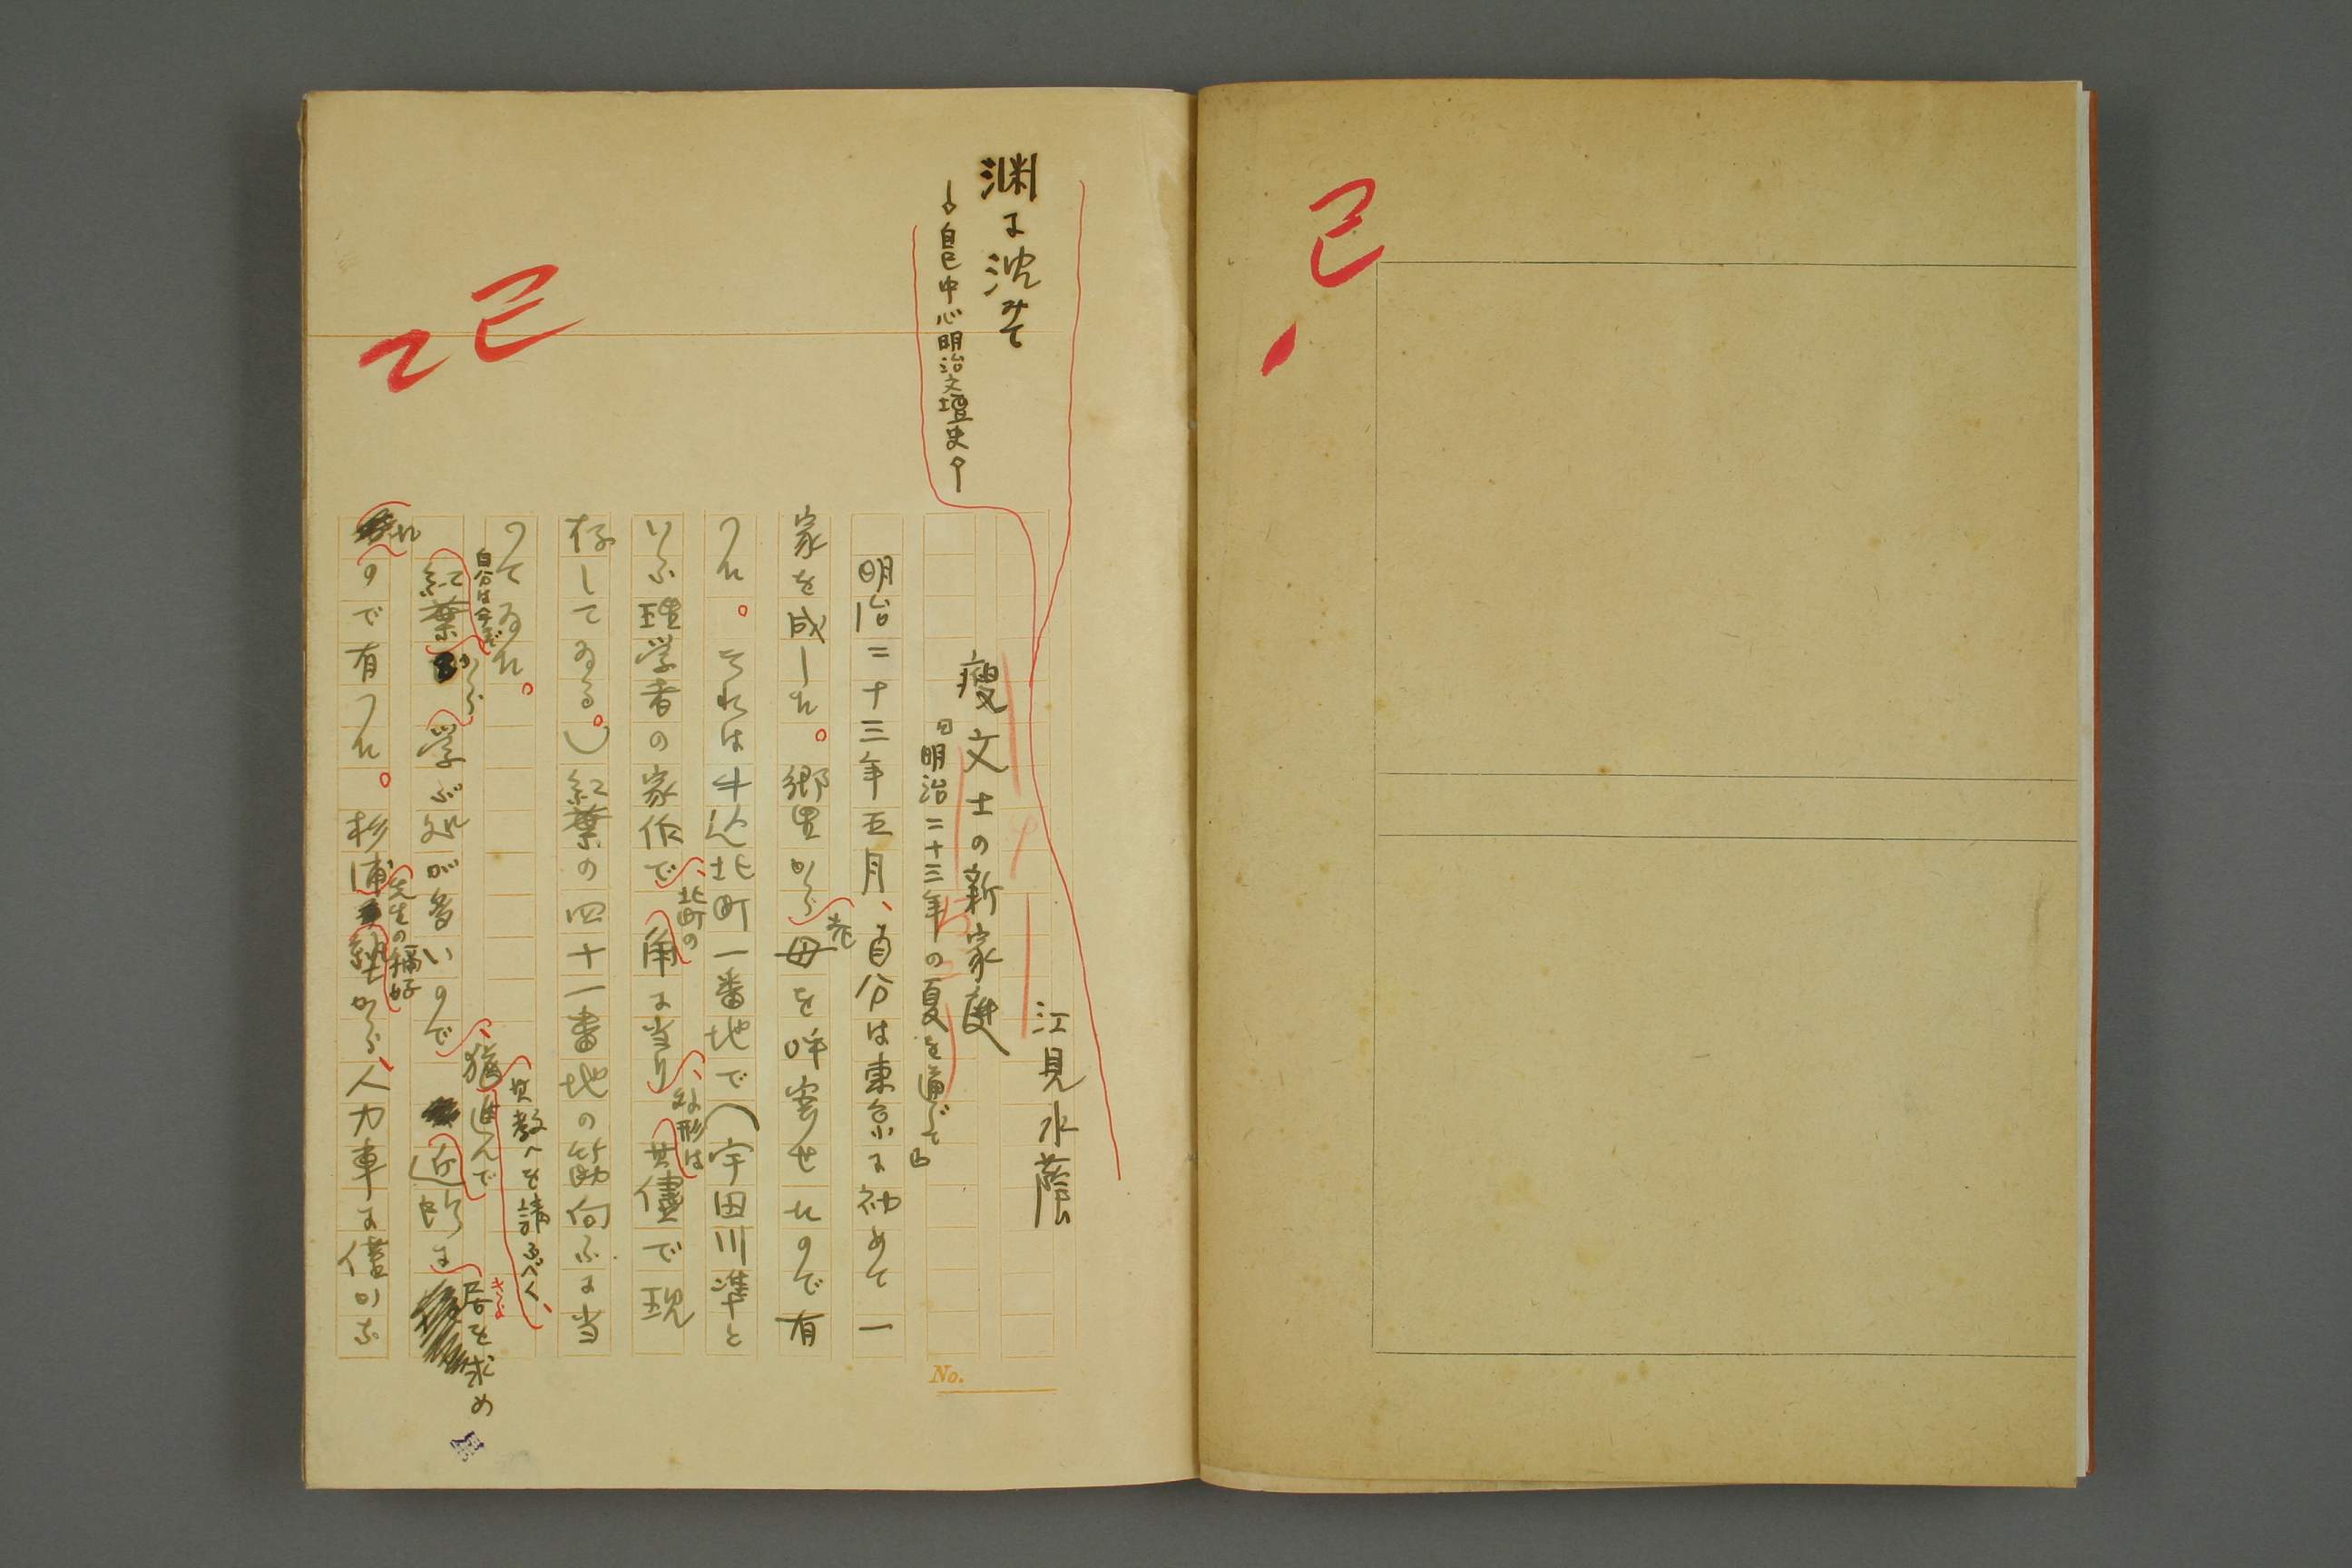 淵に沈みて
自己中心明治文壇史
江見水蔭
痩文士の新家庭
明治二十三年の夏を通じて
明治二十三年五月、自分は東京に初めて一
家を成した。郷里から老母を呼寄せたので有
つた。それは牛込北町一番地で(宇田川準と
いふ理学者の家作で、北町の角に当り、外形は其儘で現
存してゐる。)紅葉の四十一番地の筋向ふに当
つてゐた。
自分は今まだ紅葉から学ぶ処が多いので、猶進んで其教へを請ふべく、近所に居を求め
たので有つた。杉浦先生の称好塾から、人力車に僅かな
No.